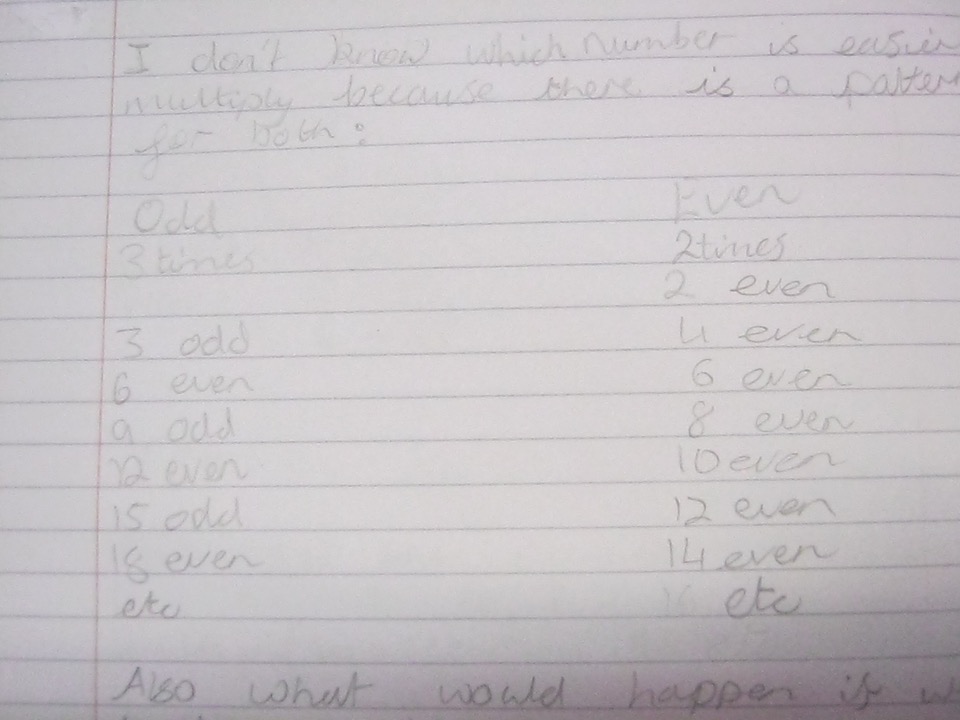 I don't know which number is easier
multiply because there is a patter
for both:
Odd Even
3 times 2times
2 even
3 odd 4 even
6 even 6 even
9 odd 8 even
12 even 10 even
15 odd 12 even
18 even 14 even
etc etc
Also what would happen if w